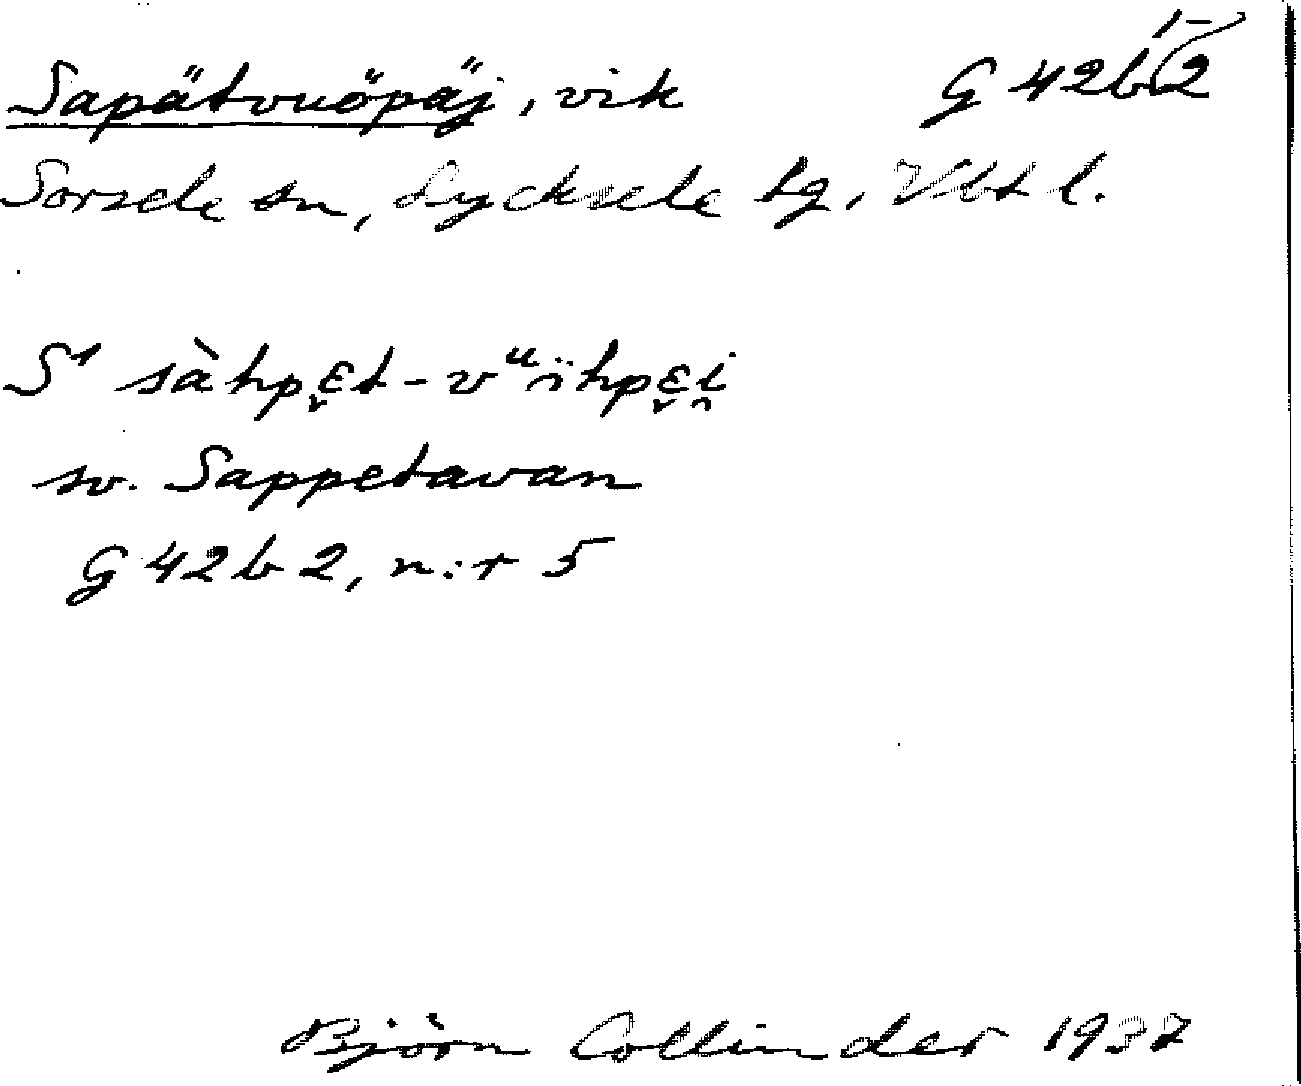 Sapätvuöpäj, vik G 42b 1-2
Sorsele sn, Lycksele lg, Vbtl.
S¹ sàhpε̬t-vᵘïhpε̬i̯
sv. Sappetavan
G 42 b 2, n:r 5
Björn Collinder 1937